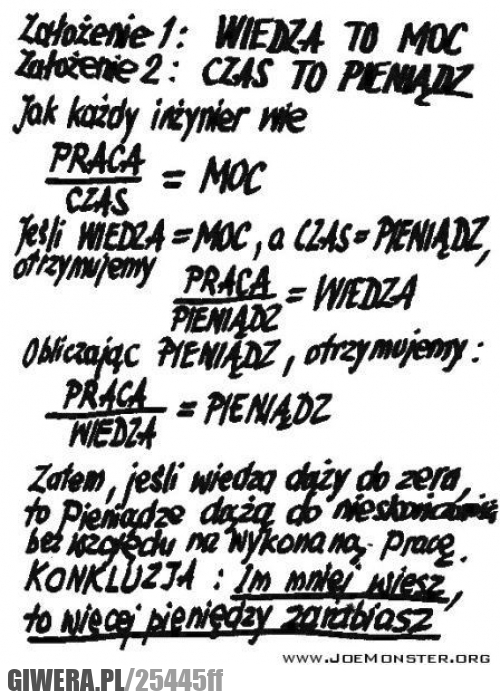 Założenie 1: WIEDZA TO MOC
Założenie 2: CZAS TO PIENIĄDZ
Jak każdy inżynier wie
PRACA
CZAS
= MOC
Jeśli WIEDZA = MOC, a CZAS = PIENIĄDZ,
otrzymujemy
PRACA
PIENIĄDZ
= WIEDZA
Obliczając PIENIĄDZ, otrzymujemy:
PRACA
WIEDZA
= PIENIĄDZ
Zatem, jeśli wiedza dąży do zera,
to Pieniądze dążą do nieskończoności
bez względu na wykonaną Pracę.
KONKLUZJA: Im mniej wiesz,
to więcej pieniędzy zarabiasz
WWW.JOEMONSTER.ORG
GIWERA.PL/25445ff